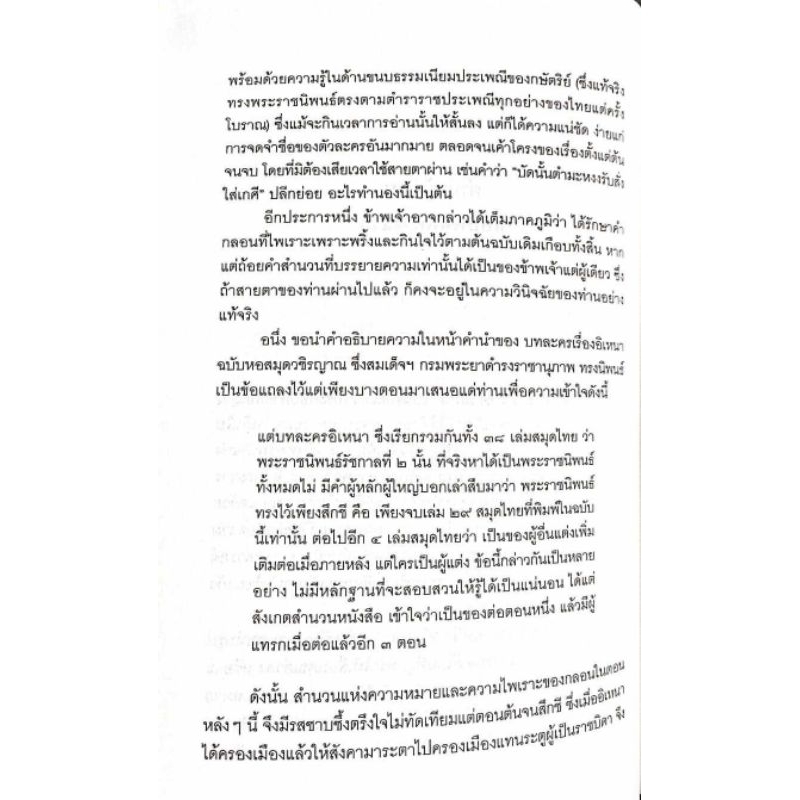 พร้อมด้วยความรู้ในด้านขนบธรรมเนียมประเพณีของกษัตริย์ (ซึ่งแท้จริง
ทรงพระราชนิพนธ์ตรงตามตำราราชประเพณีทุกอย่างของไทยแต่ครั้ง
โบราณ) ซึ่งแม้จะกินเวลาการอ่านนั้นให้สั้นลง แต่ก็ได้ความแน่ชัด ง่ายแก่
การจดจำชื่อของตัวละครอันมากมาย ตลอดจนเค้าโครงของเรื่องตั้งแต่ต้น
จนจบ โดยที่มิต้องเสียเวลาใช้สายตาผ่าน เช่นคำว่า “บัดนั้นตำมะหงงรับสั่ง
ใส่เกศี” ปลีกย่อย อะไรทำนองนี้เป็นต้น
อีกประการหนึ่ง ข้าพเจ้าอาจกล่าวได้เต็มภาคภูมิว่า ได้รักษาคำ
กลอนที่ไพเราะเพราะพริ้งและกินใจไว้ตามต้นฉบับเดิมเกือบทั้งสิ้น หาก
แต่ถ้อยคำสำนวนที่บรรยายความเท่านั้นได้เป็นของข้าพเจ้าแต่ผู้เดียว ซึ่ง
ถ้าสายตาของท่านผ่านไปแล้ว ก็คงจะอยู่ในความวินิจฉัยของท่านอย่าง
แท้จริง
อนึ่ง ขอนำคำอธิบายความในหน้าคำนำของ บทละครเรื่องอิเหนา
ฉบับหอสมุดวชิรญาณ ซึ่งสมเด็จฯ กรมพระยาดำรงราชานุภาพ ทรงนิพนธ์
เป็นข้อแถลงไว้แต่เพียงบางตอนมาเสนอแด่ท่านเพื่อความเข้าใจดังนี้
แต่บทละครอิเหนา ซึ่งเรียกรวมกันทั้ง ๓๘ เล่มสมุดไทย ว่า
พระราชนิพนธ์รัชกาลที่ ๒ นั้น ที่จริงหาได้เป็นพระราชนิพนธ์
ทั้งหมดไม่ มีคำผู้หลักผู้ใหญ่บอกเล่าสืบมาว่า พระราชนิพนธ์
ทรงไว้เพียงสึกชี คือ เพียงจบเล่ม ๒๙ สมุดไทยที่พิมพ์ในฉบับ
นี้เท่านั้น ต่อไปอีก ๔ เล่มสมุดไทยว่า เป็นของผู้อื่นแต่งเพิ่ม
เติมต่อเมื่อภายหลัง แต่ใครเป็นผู้แต่ง ข้อนี้กล่าวกันเป็นหลาย
อย่าง ไม่มีหลักฐานที่จะสอบสวนให้รู้ได้เป็นแน่นอน ได้แต่
สังเกตสำนวนหนังสือ เข้าใจว่าเป็นของต่อตอนหนึ่ง แล้วมีผู้
แทรกเมื่อต่อแล้วอีก ๓ ตอน
ดังนั้น สำนวนแห่งความหมายและความไพเราะของกลอนในตอน
หลังๆ นี้ จึงมีรสซาบซึ้งตรึงใจไม่ทัดเทียมแต่ตอนต้นจนสึกชี ซึ่งเมื่ออิเหนา
ได้ครองเมืองแล้วให้สังคามาระตาไปครองเมืองแทนระตูผู้เป็นราชบิดา จึง